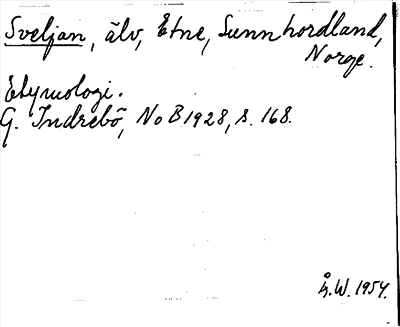 Sveljan, älv, Etne, Sunnhordland,
Norge.
Etymologi.
G. Indrebö, NoB 1928, s. 168.
Å.W. 1954.